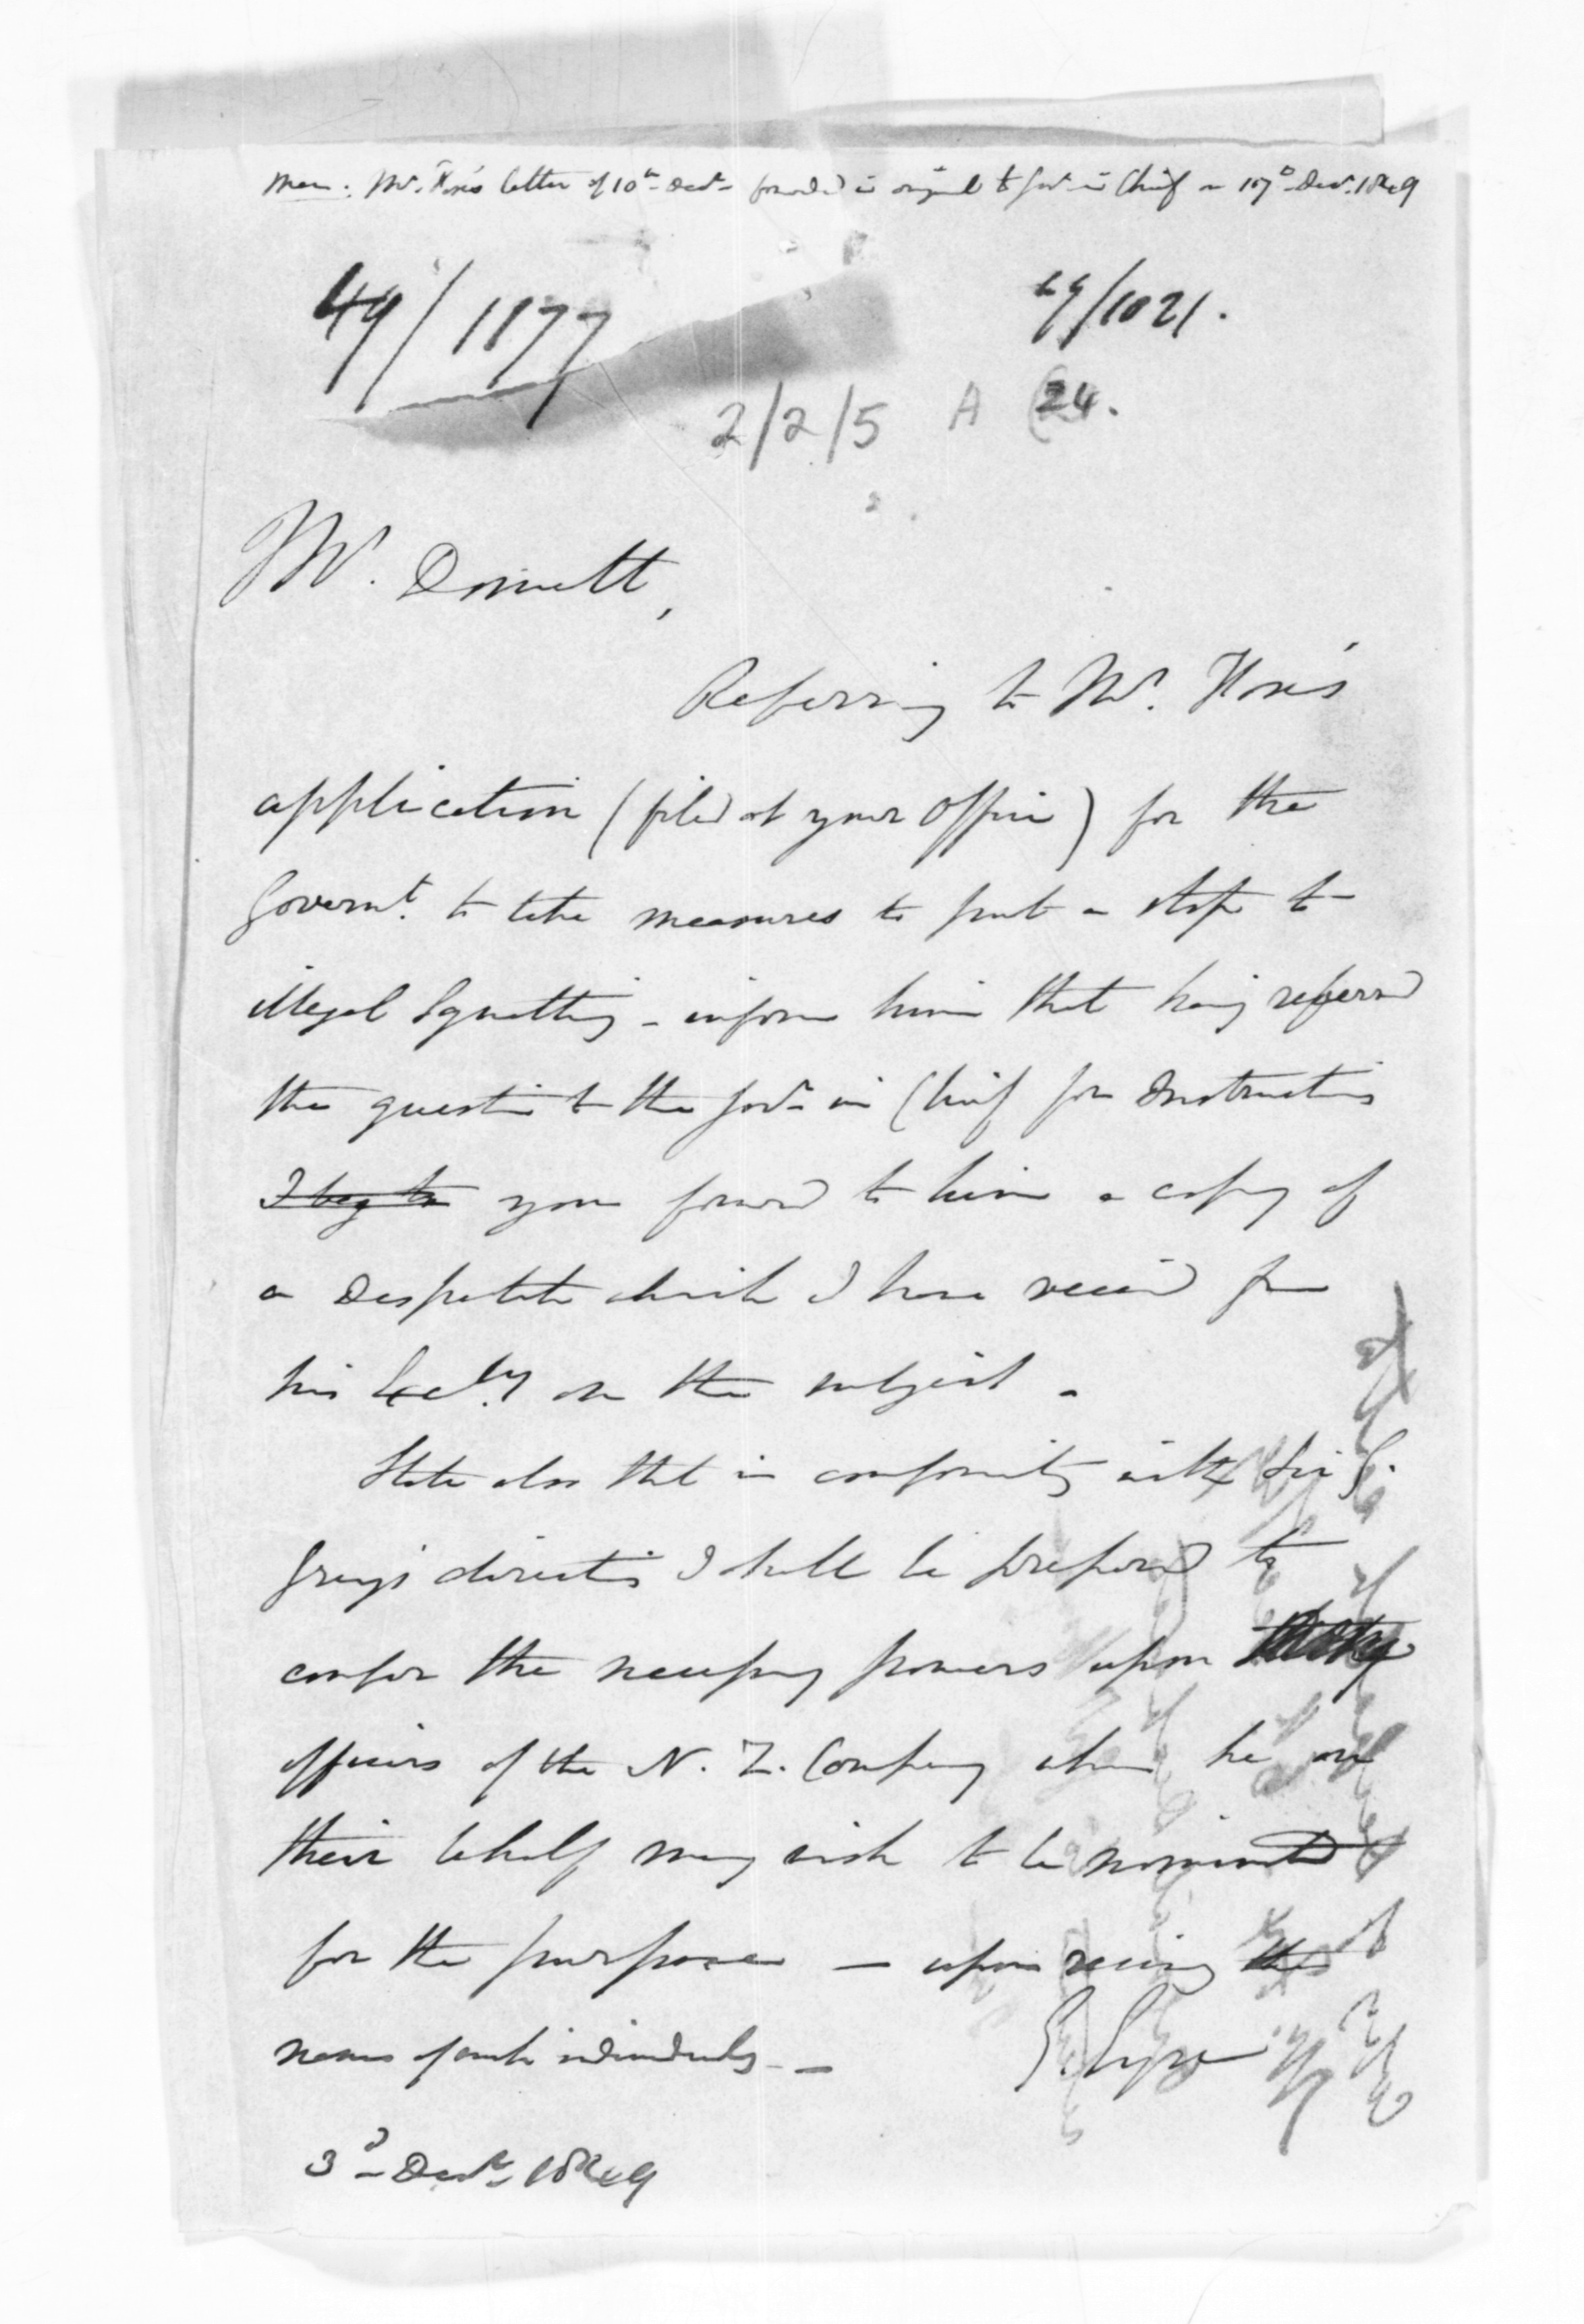 Mem: Mr. Fox's letter of 10th Decr forwarded in original to Govr in Chief on 17th Decr. 1849
49/1177
49/1021.
2/2/5 A (24.
Mr. Domett,
Referring to Mr. Fox's
application (filed at your Office) for the
Governt. to take measures to put a stop to
illegal Squatting - inform him that having referred
the question to the Govr in Chief for Instructions
I beg to you forward to him a copy of
a Despatch which I have received from
his Excly. on the subject -
State also that in conformity with Sir G.
Grey's directions I shall be prepared to
confer the necessary powers upon
officers of the N. Z. Company whom he on
their behalf may wish to be nominated
for the purpose — upon receiving the
names of such individuals -
E. Eyre
3d Decr 1849